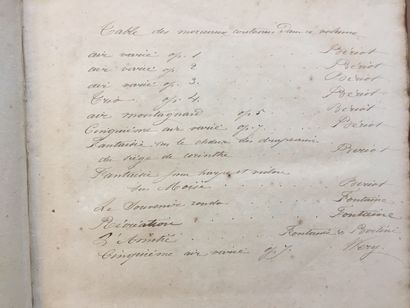 Table des morceaux contenus dans ce volume
air varié op. 1 . . . Bériot
air varié op. 2 . . . Bériot
air varié op. 3. . . . Bériot
Trio op. 4. . . . Bériot
air montagnard op 5 . . . Bériot
Cinquième air varié op. 7. . . . Bériot
Fantaisie sur le choeur des drapeaux
du siège de corinthe . . . Beriot
Fantaisie pour harpe et violon
sur Moïse . . . Beriot
Le Souvenir rondo . . . Fontaine
Récréation . . . Fontaine
L'Amitié . . . Fontaine &
Cinquième air varié op. . . . Wery